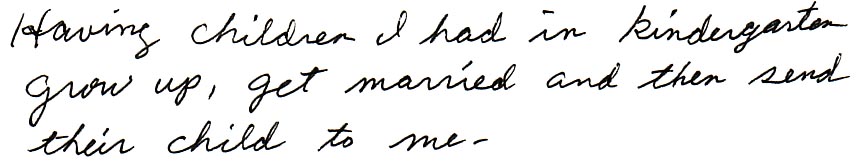 Having children I had in kindergarten
grow up, get married and then send
their child to me-